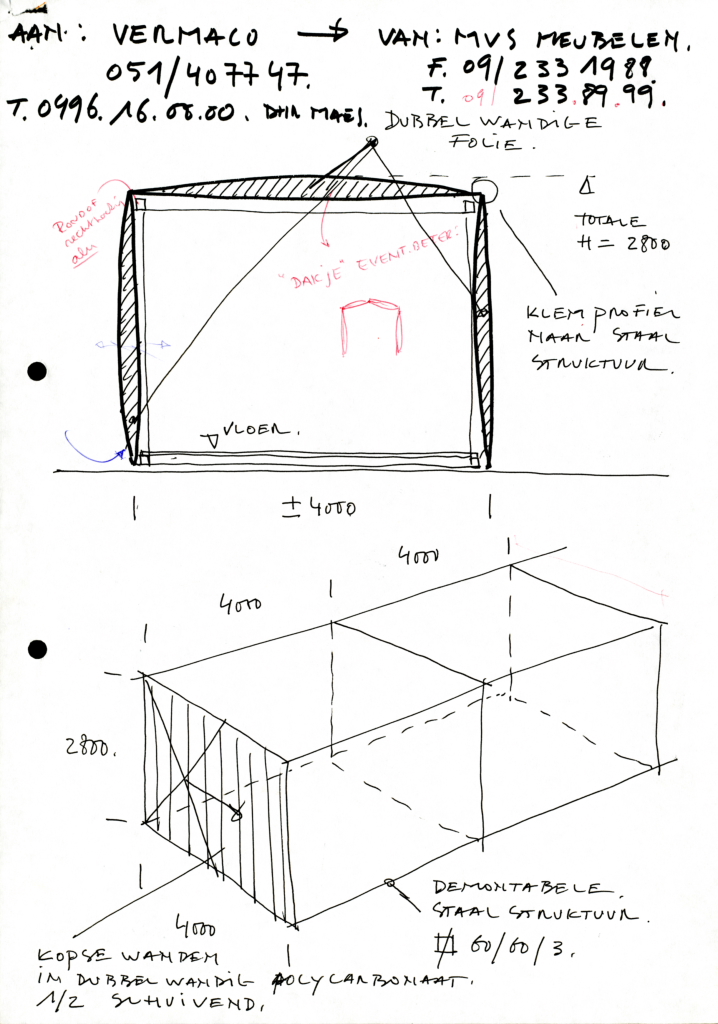 AAN: VERMACO → VAN: MVS MEUBELEN.
051/407747.
F. 09/2331988.
T. 0496.16.00.00. DHR MAES.
T. 09/233.89.99.
DUBBELWANDIGE
FOLIE.
ROND OF
rechthoekig
alu
TOTALE
H = 2800
"DAKJE" EVENT. BETER!
KLEMPROFIEL
NAAR STAAL
STRUKTUUR.
VLOER.
± 4000
4000
4000
2800.
4000
DEMONTABELE
STAALSTRUKTUUR.
60/60/3.
KOPSE WANDEN
IN DUBBELWANDIG POLYCARBONAAT.
1/2 SCHUIVEND.